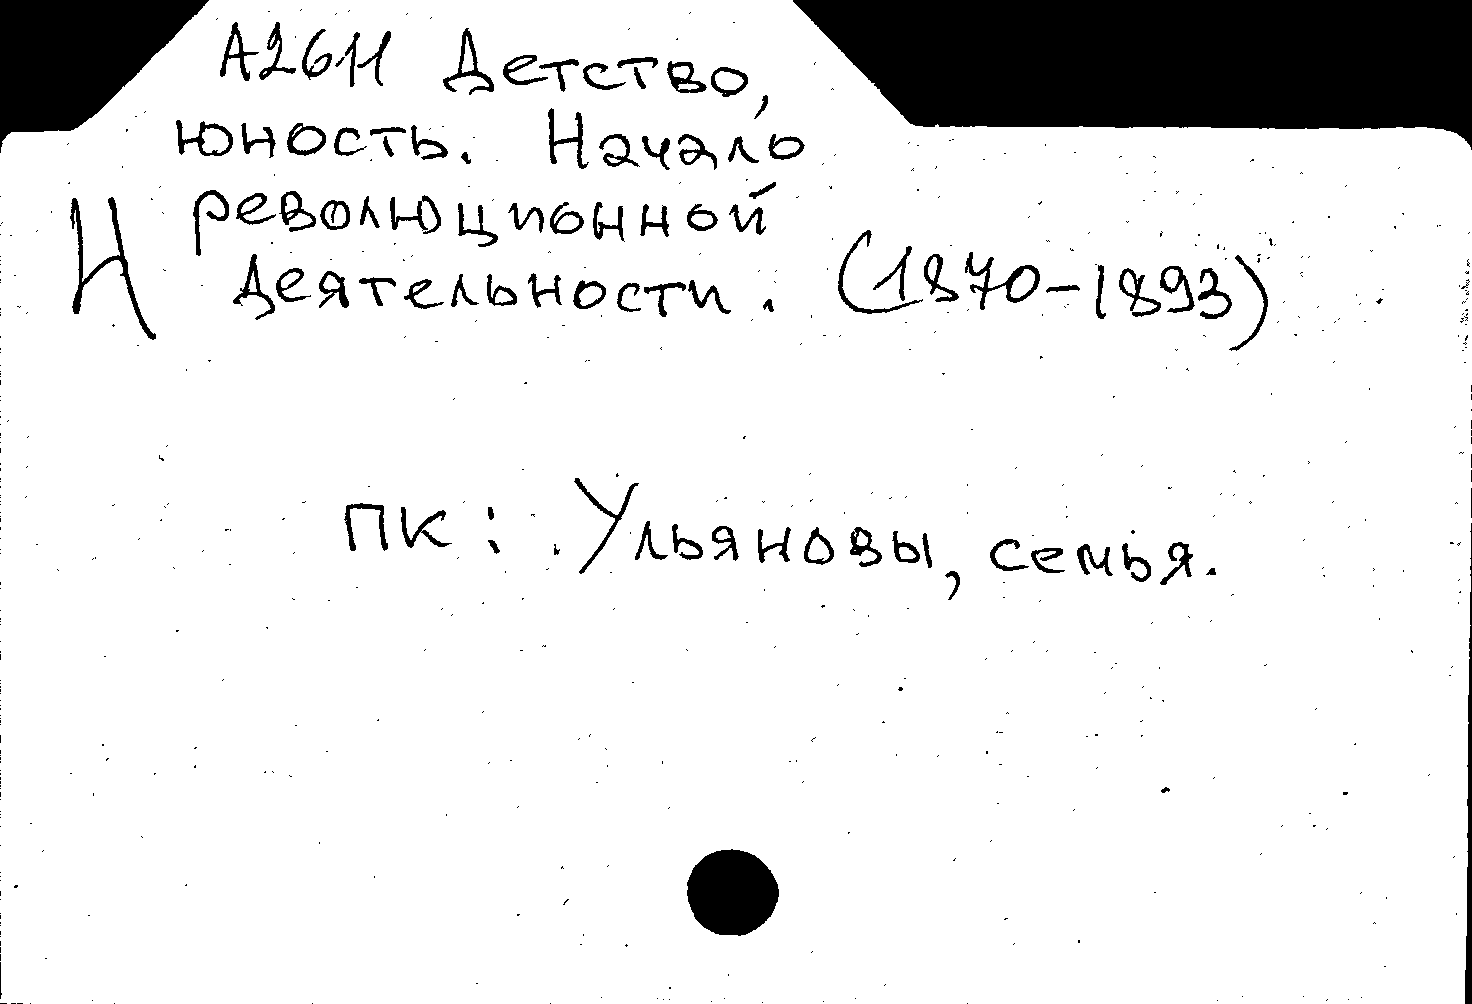 А2611 Детство,
юность. Начало
революционной
Н деятельности. (1870-1893)
ПК: Ульяновы, семья.